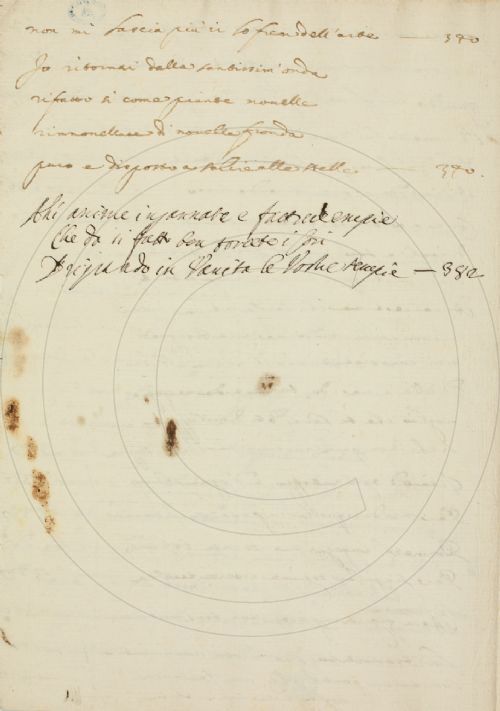 non mi lascia più ir lo fren dell'arte — 370
Io ritornai dalla santissim'onda
rifatto si come piante novelle
rinnovellate di novella fronda
puro e disposto a salire alle stelle — 370.
Ahi anime ingannate e fatture empie
Che da si fatto ben torcete i Cori
Drizzando in Vanità le Vostre tempie — 382